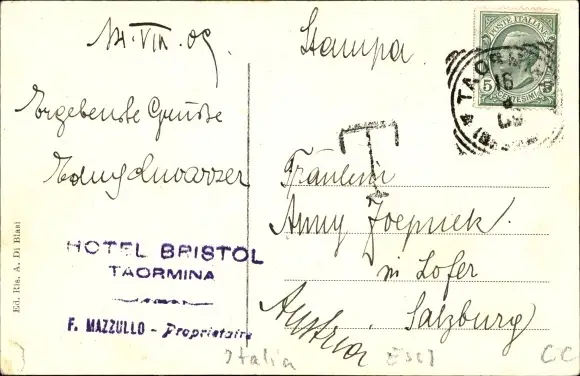 14.VIII.09.
Stampa.
POSTE ITALIANE
5
CENTESIMI
TAORMINA
16
8
09
T
Ergebenste Grüße
Fräulein
Anny Joepnick.
in Lofer
Salzburg
Austria
HOTEL BRISTOL
TAORMINA
F. MAZZULLO - Proprietaire
Ed. Ria. A. Di Blasi
Italia
CC